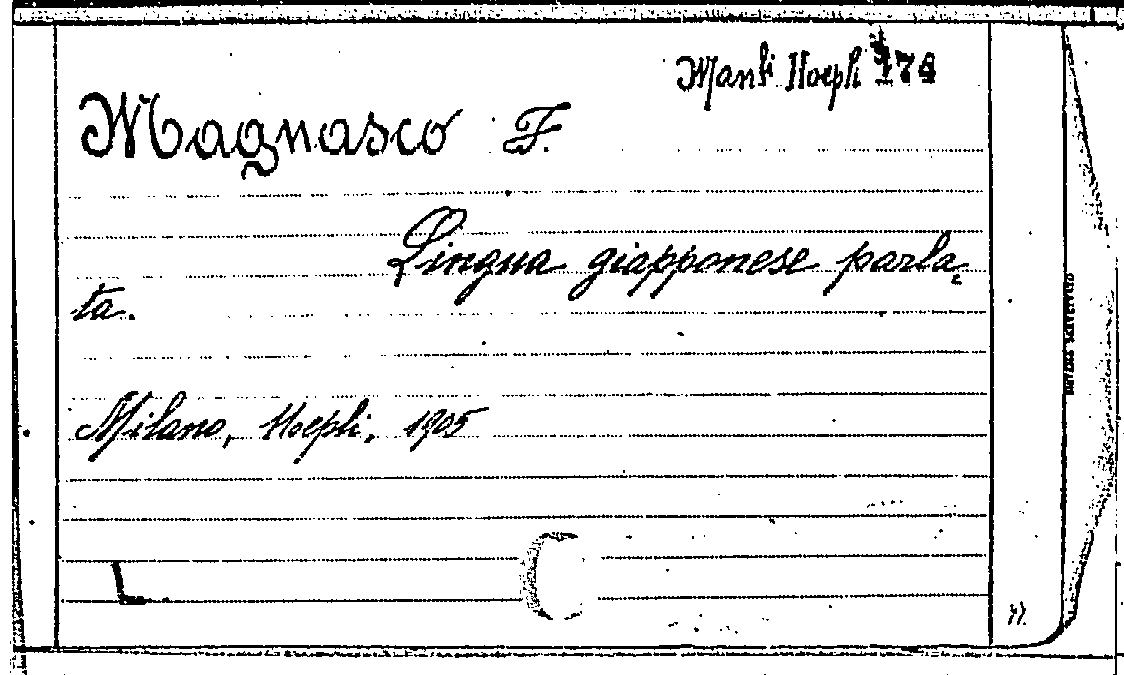 Manli Hoepli 174
Magnasco F.
Lingua giapponese parla-
ta.
Milano, Hoepli, 1905